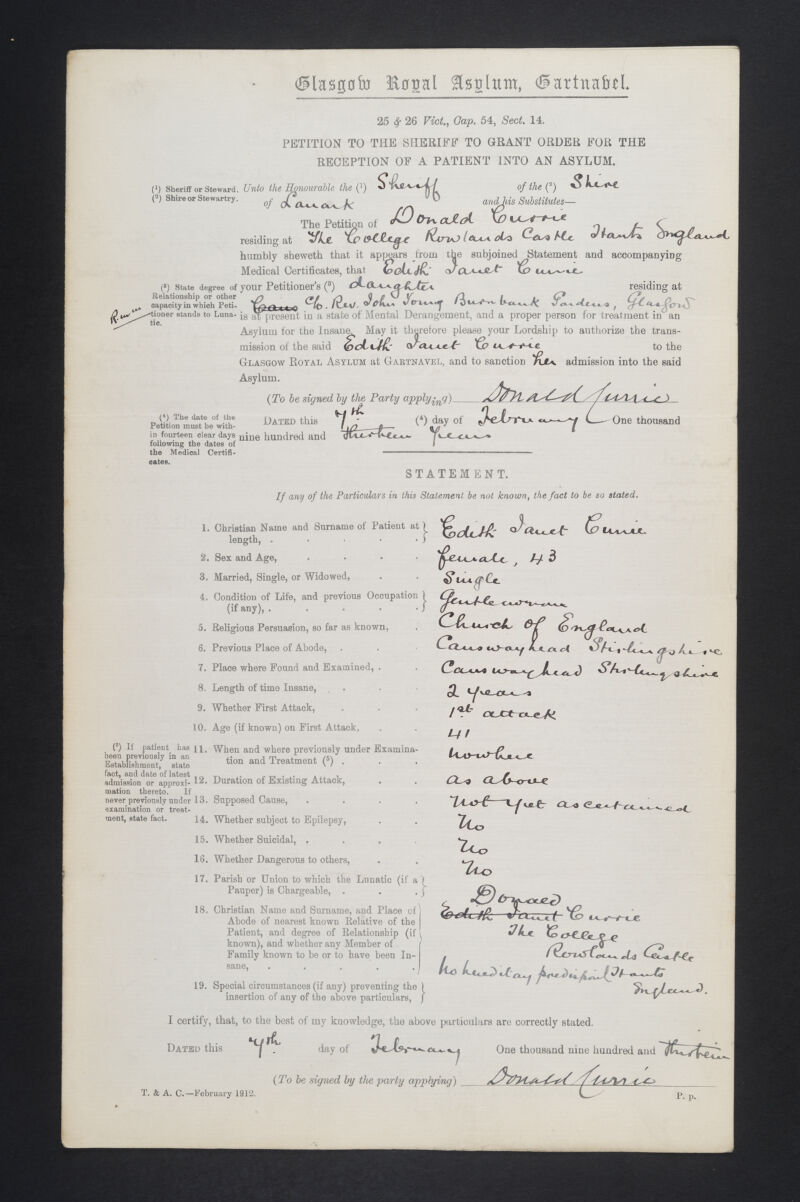 Glasgow Royal Asylum, Gartnavel.
25 & 26 Vict., Cap. 54, Sect. 14.
PETITION TO THE SHERIFF TO GRANT ORDER FOR THE
RECEPTION OF A PATIENT INTO AN ASYLUM.
(¹) Sheriff or Steward.
(²) Shire or Stewartry.
Unto the Honourable the (¹) Sheriff of the (²) Shire
of Lanark and his Substitutes—
The Petition of Donald Currie
residing at The College Rowlands Castle Hants England
humbly sheweth that it appears from the subjoined Statement and accompanying
Medical Certificates, that Edith Janet Currie
(³) State degree of
Relationship or other
capacity in which Peti-
tioner stands to Luna-
tic.
your Petitioner's (³) daughter residing at
C/o Rev. John Young Burnbank Gardens, Glasgow
is at present in a state of Mental Derangement, and a proper person for treatment in an
Asylum for the Insane. May it therefore please your Lordship to authorize the trans-
mission of the said Edith Janet Currie to the
GLASGOW ROYAL ASYLUM at GARTNAVEL, and to sanction her admission into the said
Asylum.
(To be signed by the Party applying) Donald Currie
(⁴) The date of the
Petition must be with-
in fourteen clear days
following the dates of
the Medical Certifi-
cates.
DATED this 7th (⁴) day of February One thousand
nine hundred and thirteen years
STATEMENT.
If any of the Particulars in this Statement be not known, the fact to be so stated.
1. Christian Name and Surname of Patient at
length, . . . . . Edith Janet Currie
2. Sex and Age, . . . . female, 43
3. Married, Single, or Widowed, . . Single
4. Condition of Life, and previous Occupation
(if any), . . . . . Gentlewoman
5. Religious Persuasion, so far as known, . Church of England
6. Previous Place of Abode, . . . Causwayhead Stirlingshire
7. Place where Found and Examined, . . Causwayhead Stirlingshire
8. Length of time Insane, . . . 2 years
9. Whether First Attack, . . . 1st attack
10. Age (if known) on First Attack, . . 41
(⁵) If patient has
been previously in an
Establishment, state
fact, and date of latest
admission or approxi-
mation thereto. If
never previously under
examination or treat-
ment, state fact.
11. When and where previously under Examina-
tion and Treatment (⁵) . . . nowhere
12. Duration of Existing Attack, . . as above
13. Supposed Cause, . . . . not yet ascertained
14. Whether subject to Epilepsy, . . No
15. Whether Suicidal, . . . . No
16. Whether Dangerous to others, . . No
17. Parish or Union to which the Lunatic (if a
Pauper) is Chargeable, . . .
18. Christian Name and Surname, and Place of
Abode of nearest known Relative of the
Patient, and degree of Relationship (if
known), and whether any Member of
Family known to be or to have been In-
sane, . . . . . .
Donald
Edith Janet Currie
The College
Rowlands Castle
Hants
England.
No hereditary
19. Special circumstances (if any) preventing the
insertion of any of the above particulars,
I certify, that, to the best of my knowledge, the above particulars are correctly stated.
DATED this 7th day of February One thousand nine hundred and thirteen
(To be signed by the party applying) Donald Currie
T. & A. C.—February 1912.
P. p.